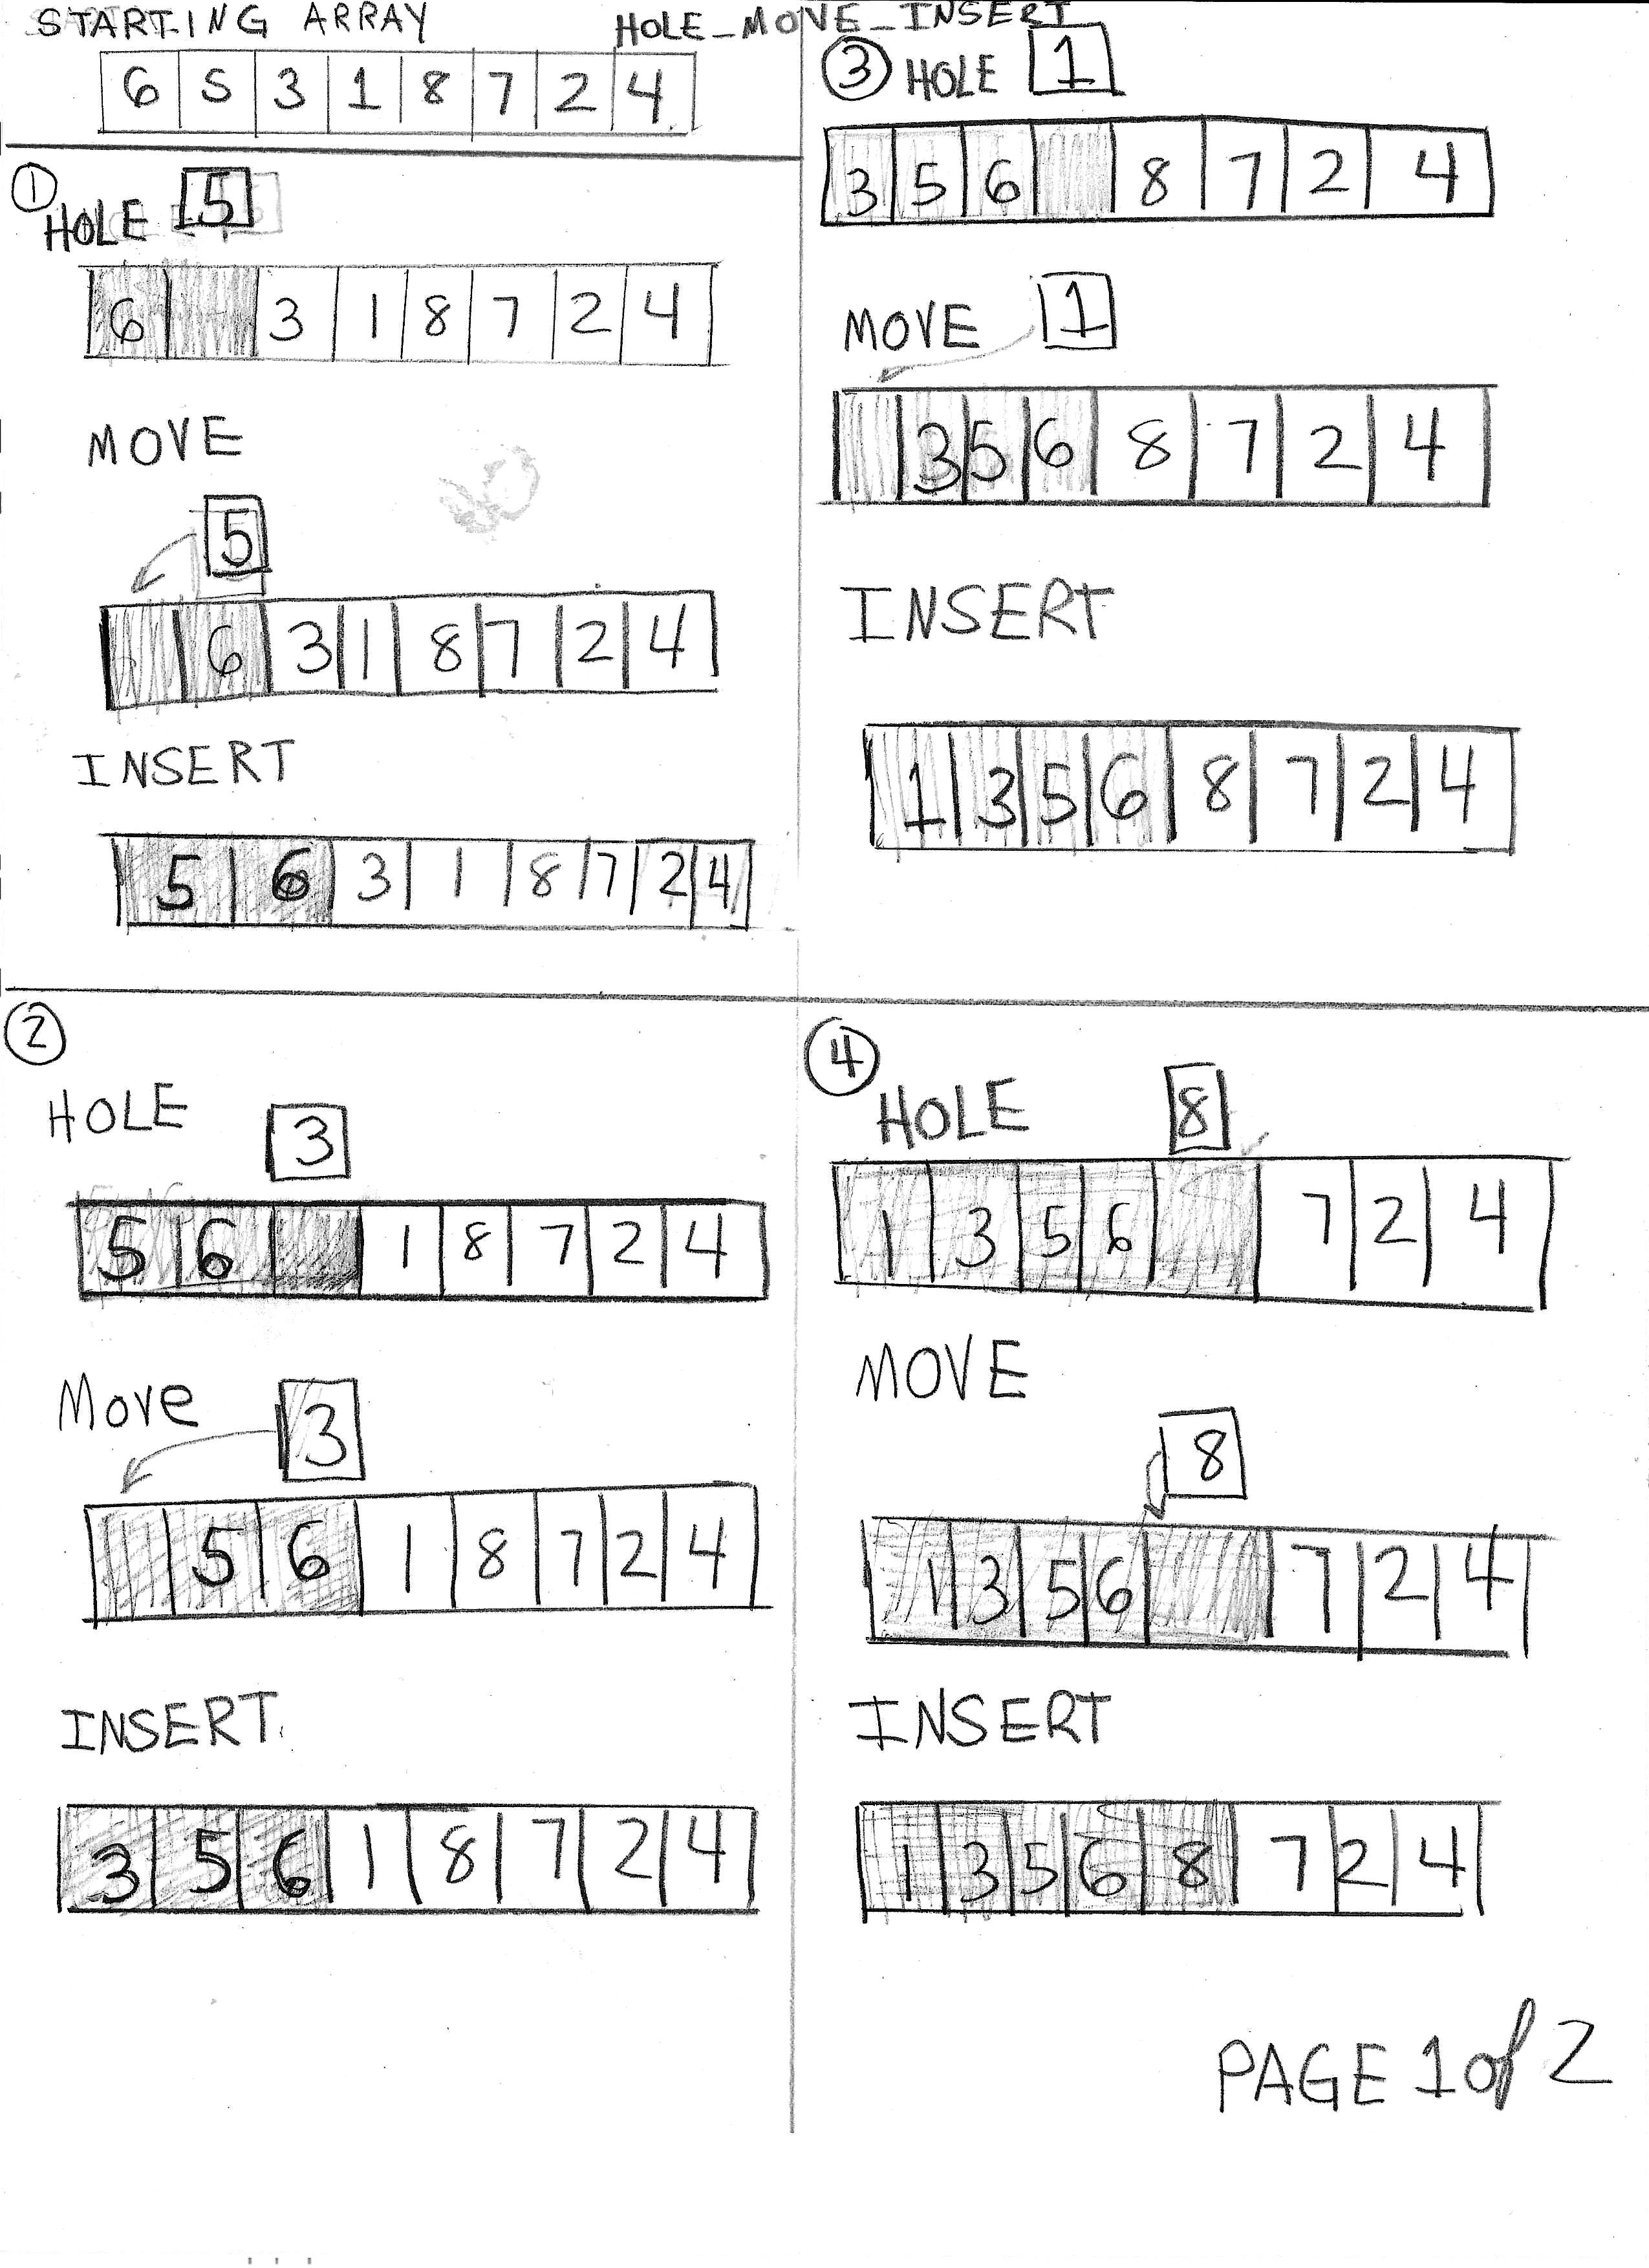 STARTING ARRAY
HOLE_MOVE_INSERT
6 5 3 1 8 7 2 4
① HOLE 5
6 3 1 8 7 2 4
MOVE
5
6 3 1 8 7 2 4
INSERT
5 6 3 1 8 7 2 4
②
HOLE 3
5 6 1 8 7 2 4
Move 3
5 6 1 8 7 2 4
INSERT
3 5 6 1 8 7 2 4
③ HOLE 1
3 5 6 8 7 2 4
MOVE 1
3 5 6 8 7 2 4
INSERT
1 3 5 6 8 7 2 4
④
HOLE 8
1 3 5 6 7 2 4
MOVE
8
1 3 5 6 7 2 4
INSERT
1 3 5 6 8 7 2 4
PAGE 1 of 2